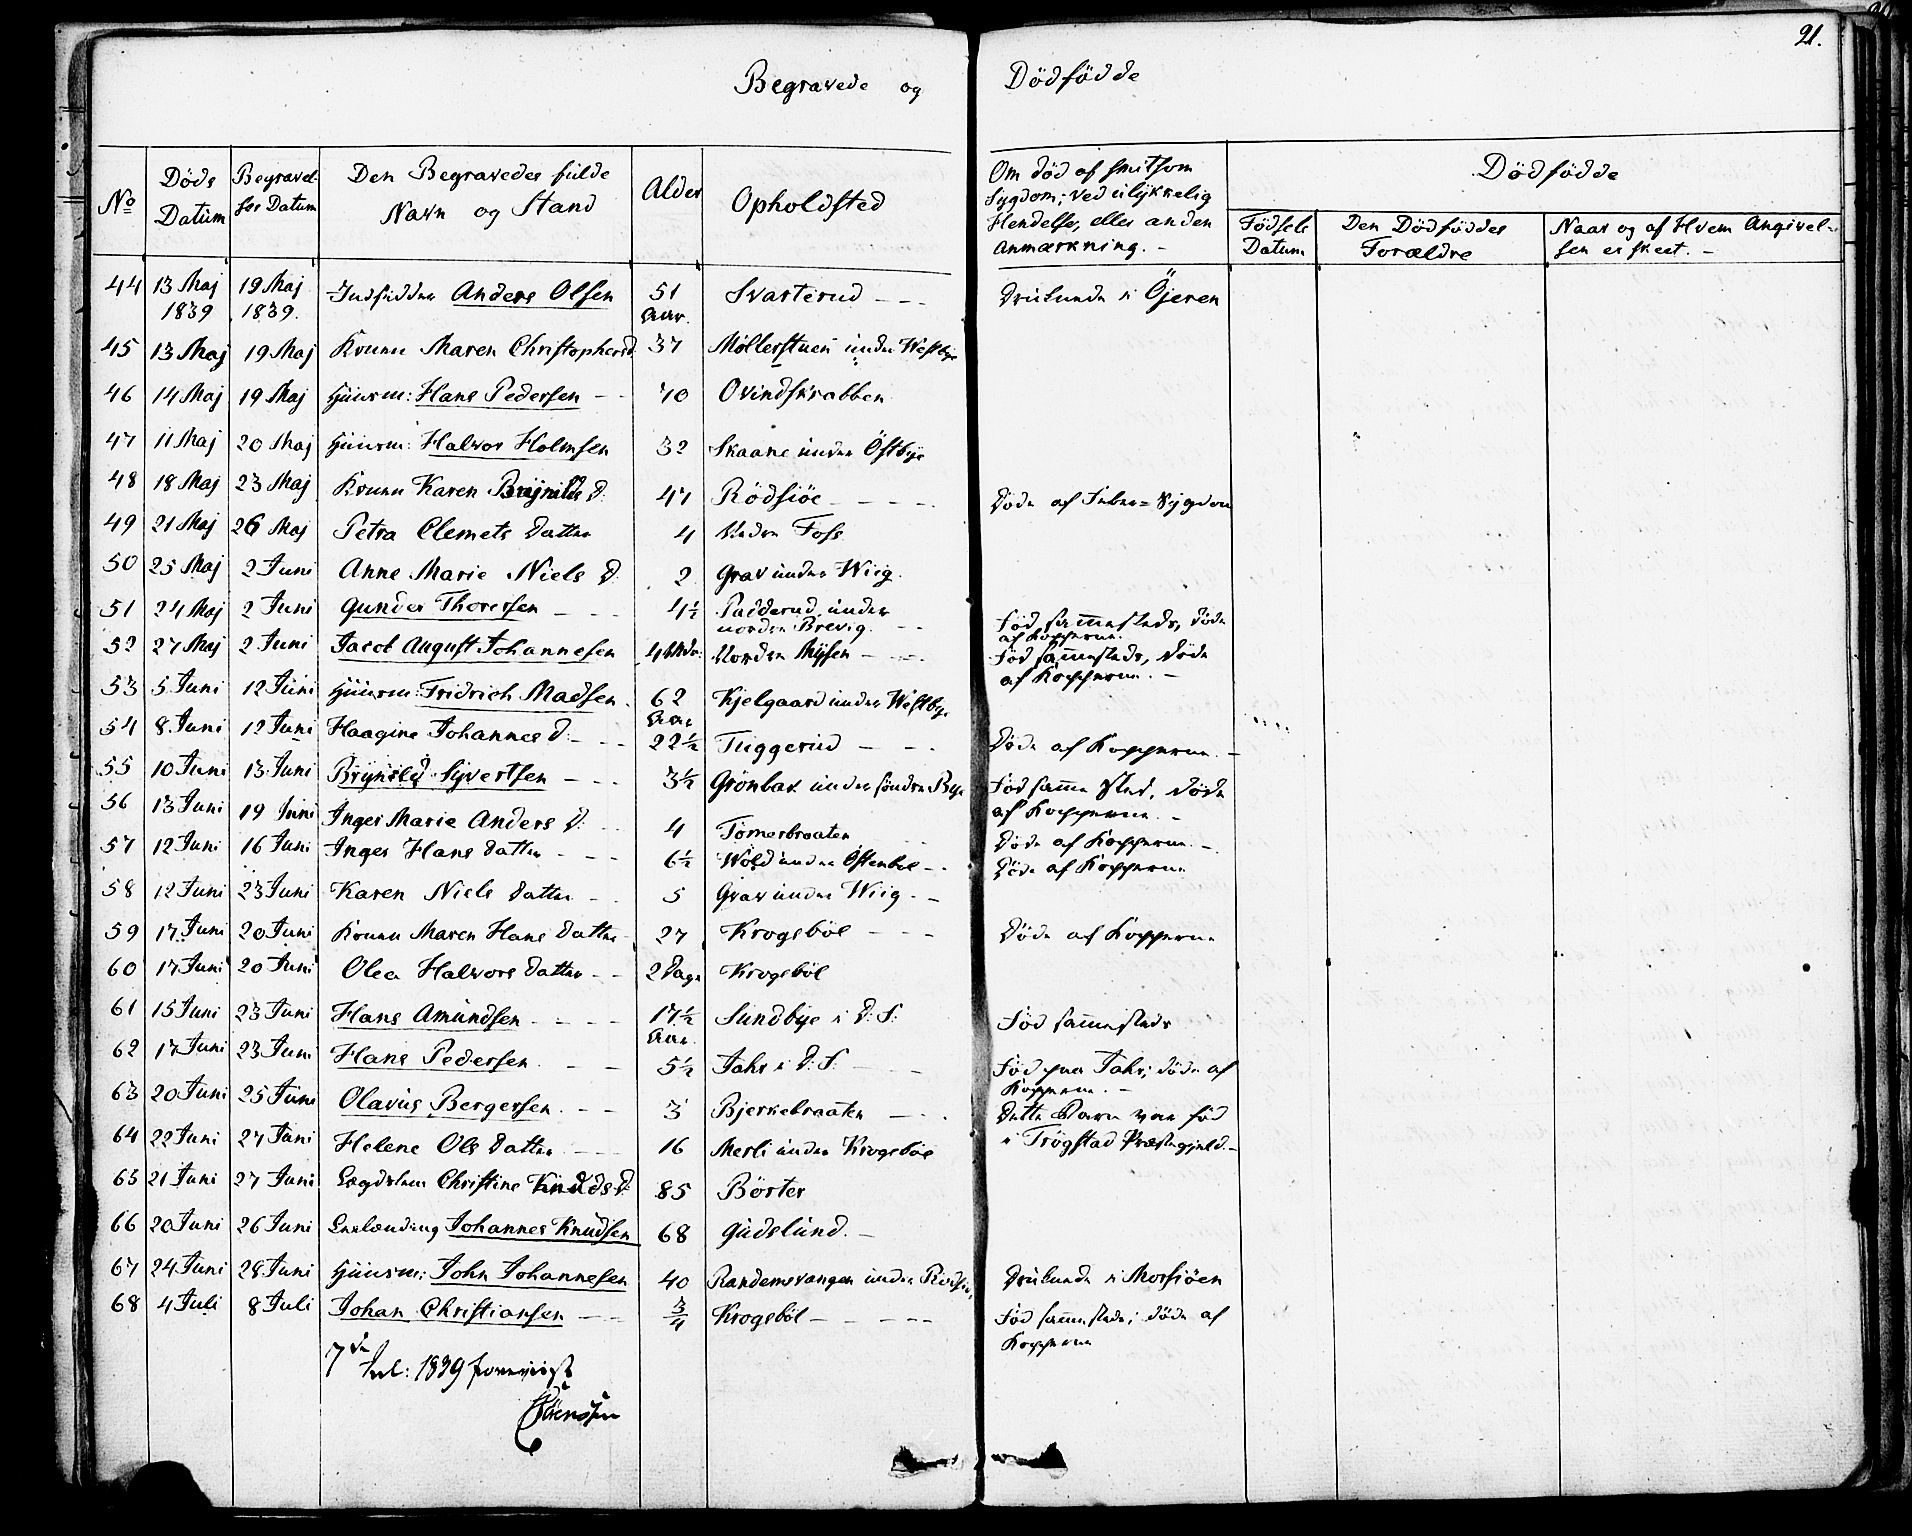 21.
Begravede og Dødfødde
No
Døds Datum
Begravelses Datum
Den Begravedes fulde Navn og Stand
Alder
Opholdsted
Om død af smitsom
Sygdom; ved ulykkelig
Hendelse, eller anden
Anmærkning. -
Dødfødde
Fødsels Datum
Den Dødføddes Forældre
Naar og af Hvem Angivel-
sen er skeet. -
44 13 Maj 1839 19 Maj 1839. Indsidder Anders Olsen 51 Aar. Svarterud - - - Drukned i Öjeren
45 13 Maj 19 Maj Konen Maren Christophersd. 37 Møllerstuen under Westbye
46 14 Maj 19 Maj Huusm: Hans Pedersen - - 70 Ovindskrabben
47 11 Maj 20 Maj Huusm: Halvor Holmsen 32 Skaane under Östbye
48 18 Maj 23 Maj Konen Karen Brynilds d: 47 Rödsiöe - - - - Döde af Feber=Sygdom
49 21 Maj 26 Maj Petra Clemets Datter 4 Nedre Foss
50 25 Maj 2 Juni Anne Marie Niels D: 2 Grav under Wiig.
51 24 Maj 2 Juni Gunder Thoresen - - - 4½ Padderud under
nordre Brevig. - - Föd sammesteds, döde
af Kopperne.
52 27 Maj 2 Juni Jacob August Johannesen 4 Mdr: Nordre Mysen - - - Föd sammesteds, Döde
af Kopperne. -
53 5 Juni 12 Juni Huusm: Fridrich Madsen. 62 Aar Kjelgaard under Westbye
54 8 Juni 12 Juni Haagine Johannes D: - - - 22½ Tuggerud - - - Döde af Kopperne. -
55 10 Juni 13 Juni Brynild Syvertsen - - - 3½ Grönbak under söndre Bye Föd samme Sted, döde
af Kopperne. -
56 13 Juni 19 Juni Inger Marie Anders D: - - 4 Tömerbraaten Döde af Kopperne. -
57 12 Juni 16 Juni Inger Hans Datter - - - 6½ Wold under Östenbøl - - Döde af Kopperne
58 12 Juni 23 Juni Karen Niels Datter - - 5 Grav under Wiig. -
59 17 Juni 20 Juni Konen Maren Hans Datter 27 Krogsböl - - - Döde af Kopperne
60 17 Juni 20 Juni Olea Halvors Datter - - 2 Dage Krogsböl
61 15 Juni 23 Juni Hans Amundsen - - - - 17½ Aar. Sundbye i D: S: Föd sammesteds
62 17 Juni 23 Juni Hans Pedersen. - - - 5½ Jahr i D: S: - - - Föd paa Jahr; döde af
Kopperne. -
63 20 Juni 25 Juni Olavus Bergersen. - - 3 Bjerkebraaten - - . Dette Barn var föd
i Trögstad Præstegjeld. -
64 22 Juni 27 Juni Helene Ols Datter - - - 16 Merli under Krogsböl
65 21 Juni 27 Juni Lægdslem Christine Knuds D: 85 Börter
66 20 Juni 26 Juni Johannes Knudsen 68 Gudslund. -
67 24 Juni 28 Juni Huusm: John Johannesen 40 Randemsvangen under Drukned i Morsiöen
68 4 Juli 8 Juli Johan Christiansen - - - ¾ Krogsböl - - - - - Föd sammesteds; döde af
Kopperne
7de Jul: 1839 foreviist